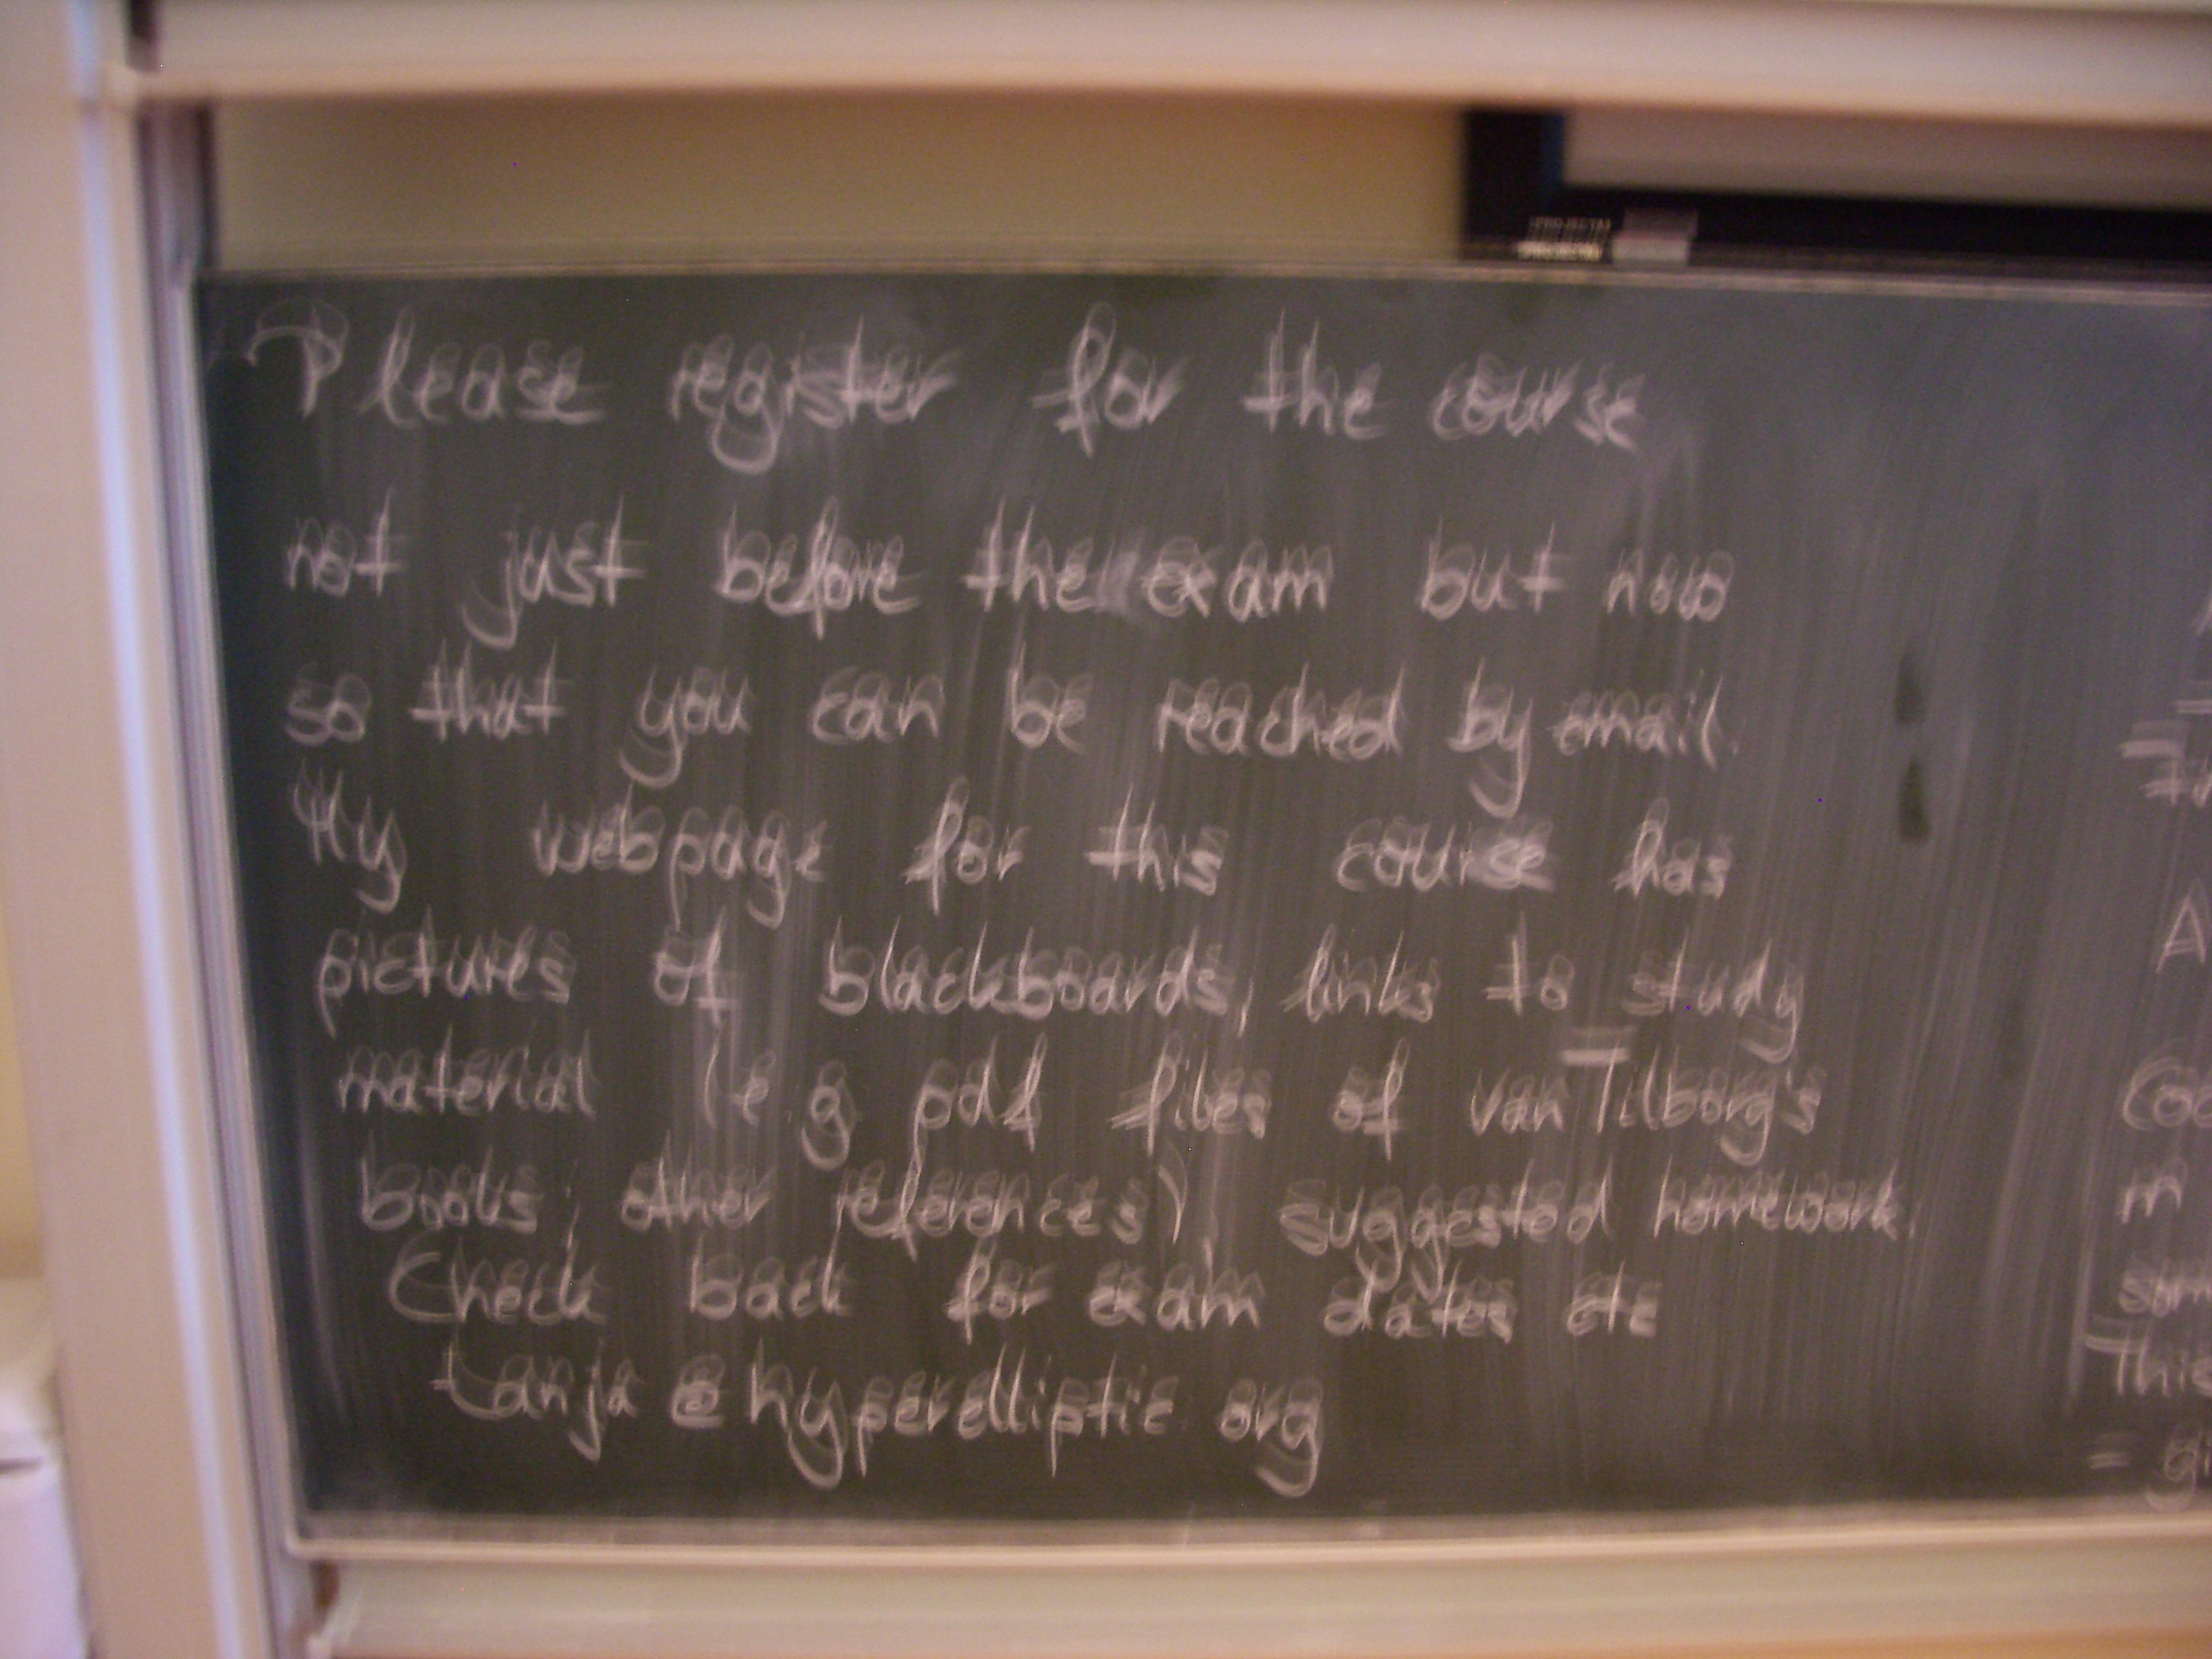 PROJECTA
Please register for the course
not just before the exam but now
so that you can be reached by email.
My webpage for this course has
pictures of blackboards, links to study
material (e.g. pdf files of van Tilborg's
books, other references), suggested homework.
Check back for exam dates etc
tanja@hyperelliptic.org
A
m
This
=